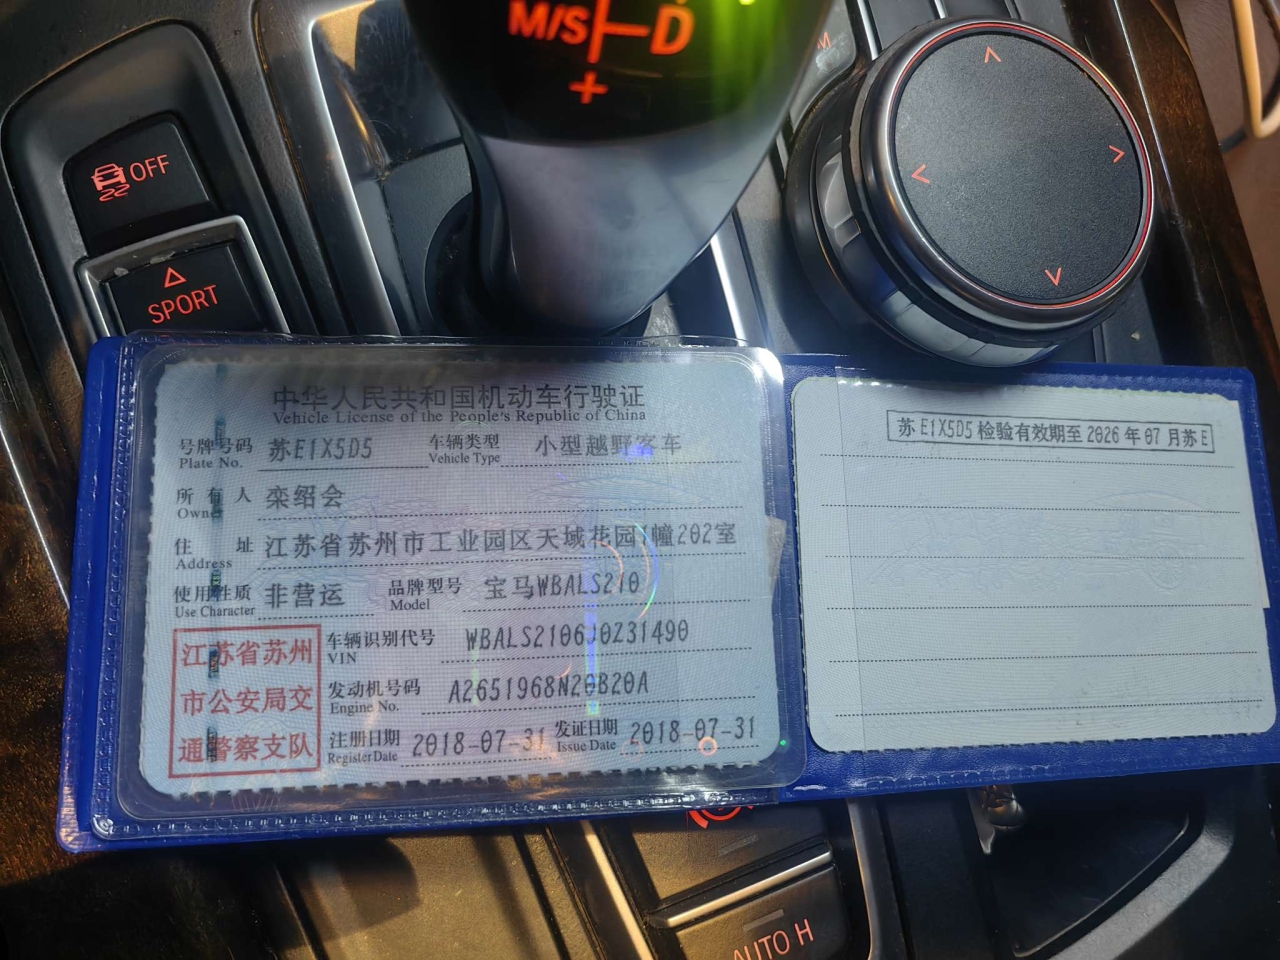 M/S D
+
OFF
SPORT
中华人民共和国机动车行驶证
Vehicle License of the People's Republic of China
号牌号码 苏E1X5D5 车辆类型 小型越野客车
Plate No. Vehicle Type
所有人 栾绍会
Owner
住址 江苏省苏州市工业园区天域花园1幢202室
Address
使用性质 非营运 品牌型号 宝马WBALS210
Use Character Model
车辆识别代号 WBALS2106J0Z31490
VIN
发动机号码 A2651968N20B20A
Engine No.
注册日期 2018-07-31 发证日期 2018-07-31
Register Date Issue Date
江苏省苏州
市公安局交
通警察支队
苏E1X5D5 检验有效期至 2026 年 07 月苏E
AUTO H